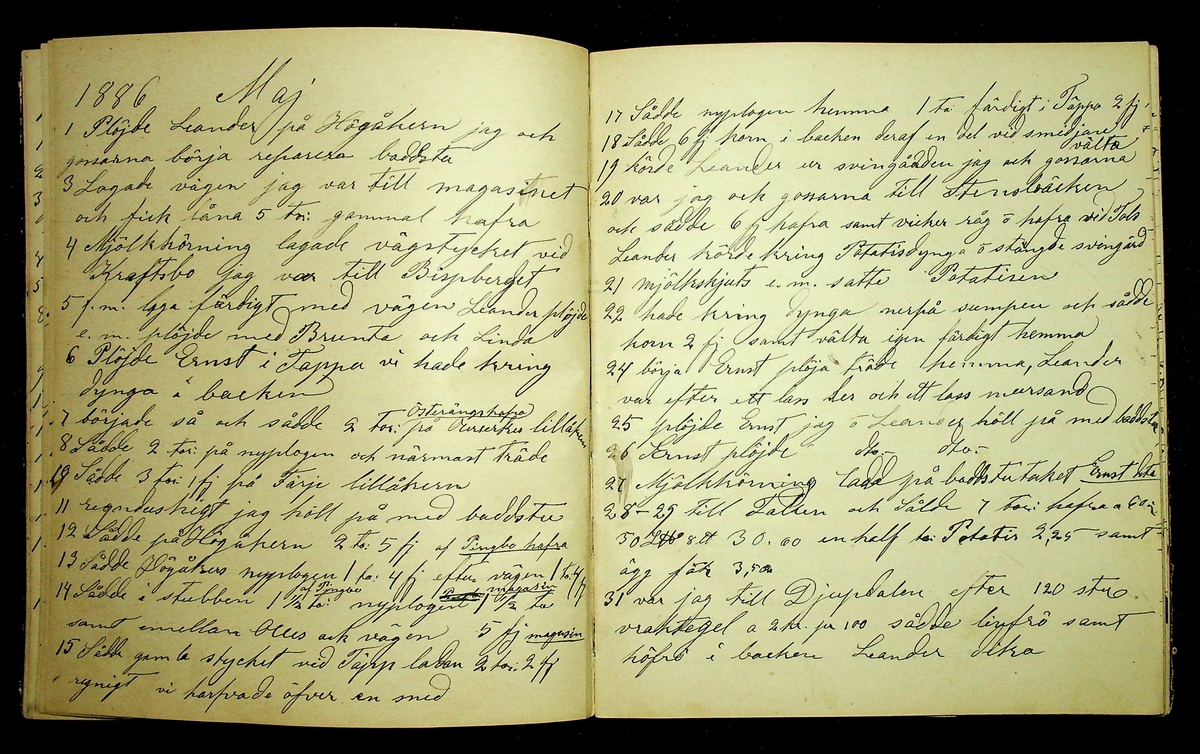 1886 Maj
1 Plöjde Leander på Högåkern jag och
gossarna börja reparera baddstu
3 Lagade vägen jag var till magasinet
och fick låna 5 tr: gammal hafra
4 Mjölkkörning lagade vägstycket vid
Kraftsbo jag var till Bispberget
5 f.m. laga färdigt med vägen Leander plöjde
e.m. plöjde med Brunta och Linda
6 Plöjde Ernst i Täppa vi hade kring
dynga i backen
Österängshafra
7 började så och sådde 2 tr: på lillåkern
8 Sådde 2 tr: på nyplogen och närmast träde
10 Sådde 3 tr: 1 fj på Färje lillåkern
11 regnduskigt jag höll på med baddstu
12 Sådde på Högåkern 2 tr: 5 fj af Pingbo hafra
13 Sådde Högåkers nyplogen 1 tr: 4 fj efter vägen 1 tr: 4 fj
af Pingbo magasin
14 Sådde i stubben 1 1/2 tr: nyplogen 1 1/2 tr
samt emellan Olles och vägen 5 fj magasin
15 Sådde gamla stycket vid Täpp ladan 2 tr: 2 fj
regnigt vi harfvade öfver en med
17 Sådde nyplogen hemma 1 tr: färdigt i Täppa 2 fj
18 Sådde 6 fj korn i backen deraf en del vid smedjan
välta
19 körde Leander ur svingården jag och gossarna
20 var jag och gossarna till Stensbäcken
och sådde 6 fj hafra samt vicker råg o hafra vid Tols
Leander körde kring Potatisdynga o stängde svingård
21 mjölkskjuts e.m. satte Potatisen
22 hade kring dynga nerpå sumpen och sådde
korn 2 fj samt välta igen färdigt hemma
24 börja Ernst plöja träde hemma, Leander
var efter ett lass ler och ett lass mursand
25 plöjde Ernst jag o Leander höll på med baddstun
26 Ernst plöjde do- do-
27 Mjölkkörning ladd på baddstutaket Ernst
28-29 till Falun och Sålde 7 tr: hafra a 60
50 8 30.60 en half tr: Potatis 2,25 samt
ägg för 3,50
31 var jag till Djupdalen efter 120 stu
vraktegel a 2 kr. pr 100 sådde linfrö samt
höfrö i backen Leander